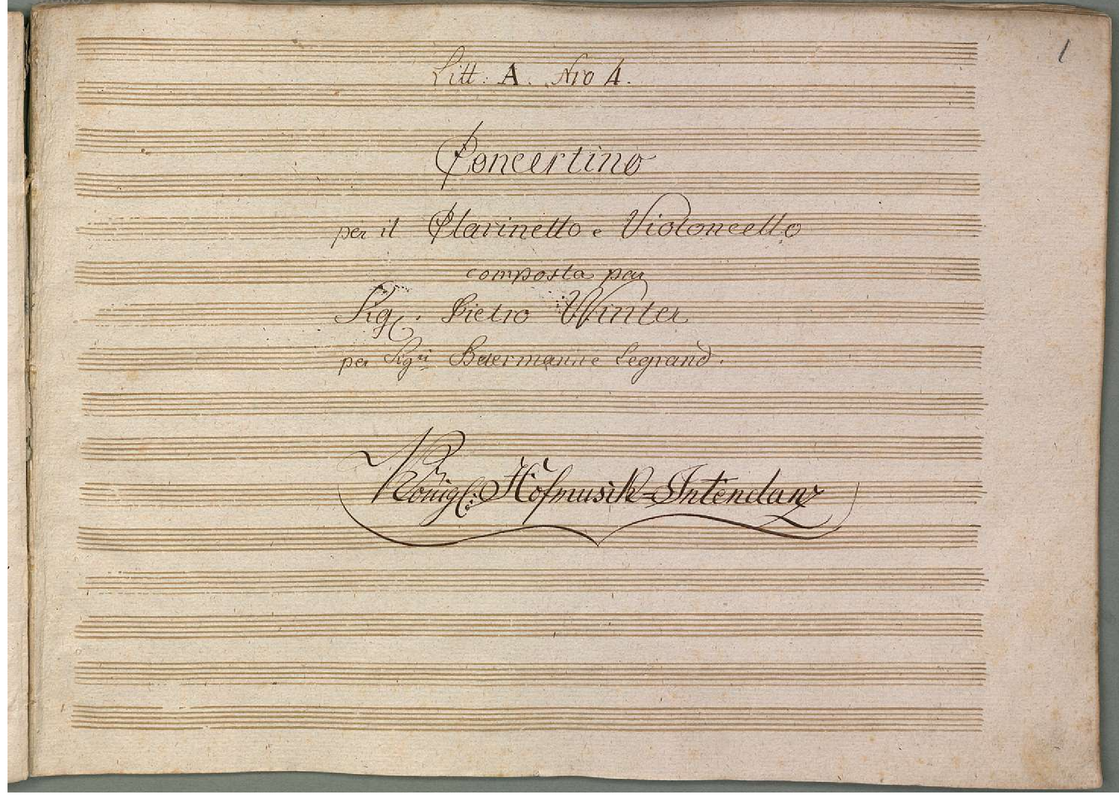 1
Litt: A. Nro 4.
Concertino
per il Clarinetto e Violoncello
composta per
Sig. Pietro Winter
per Sigri Baermann e Legrand.
Königl: Hofmusik=Intendanz